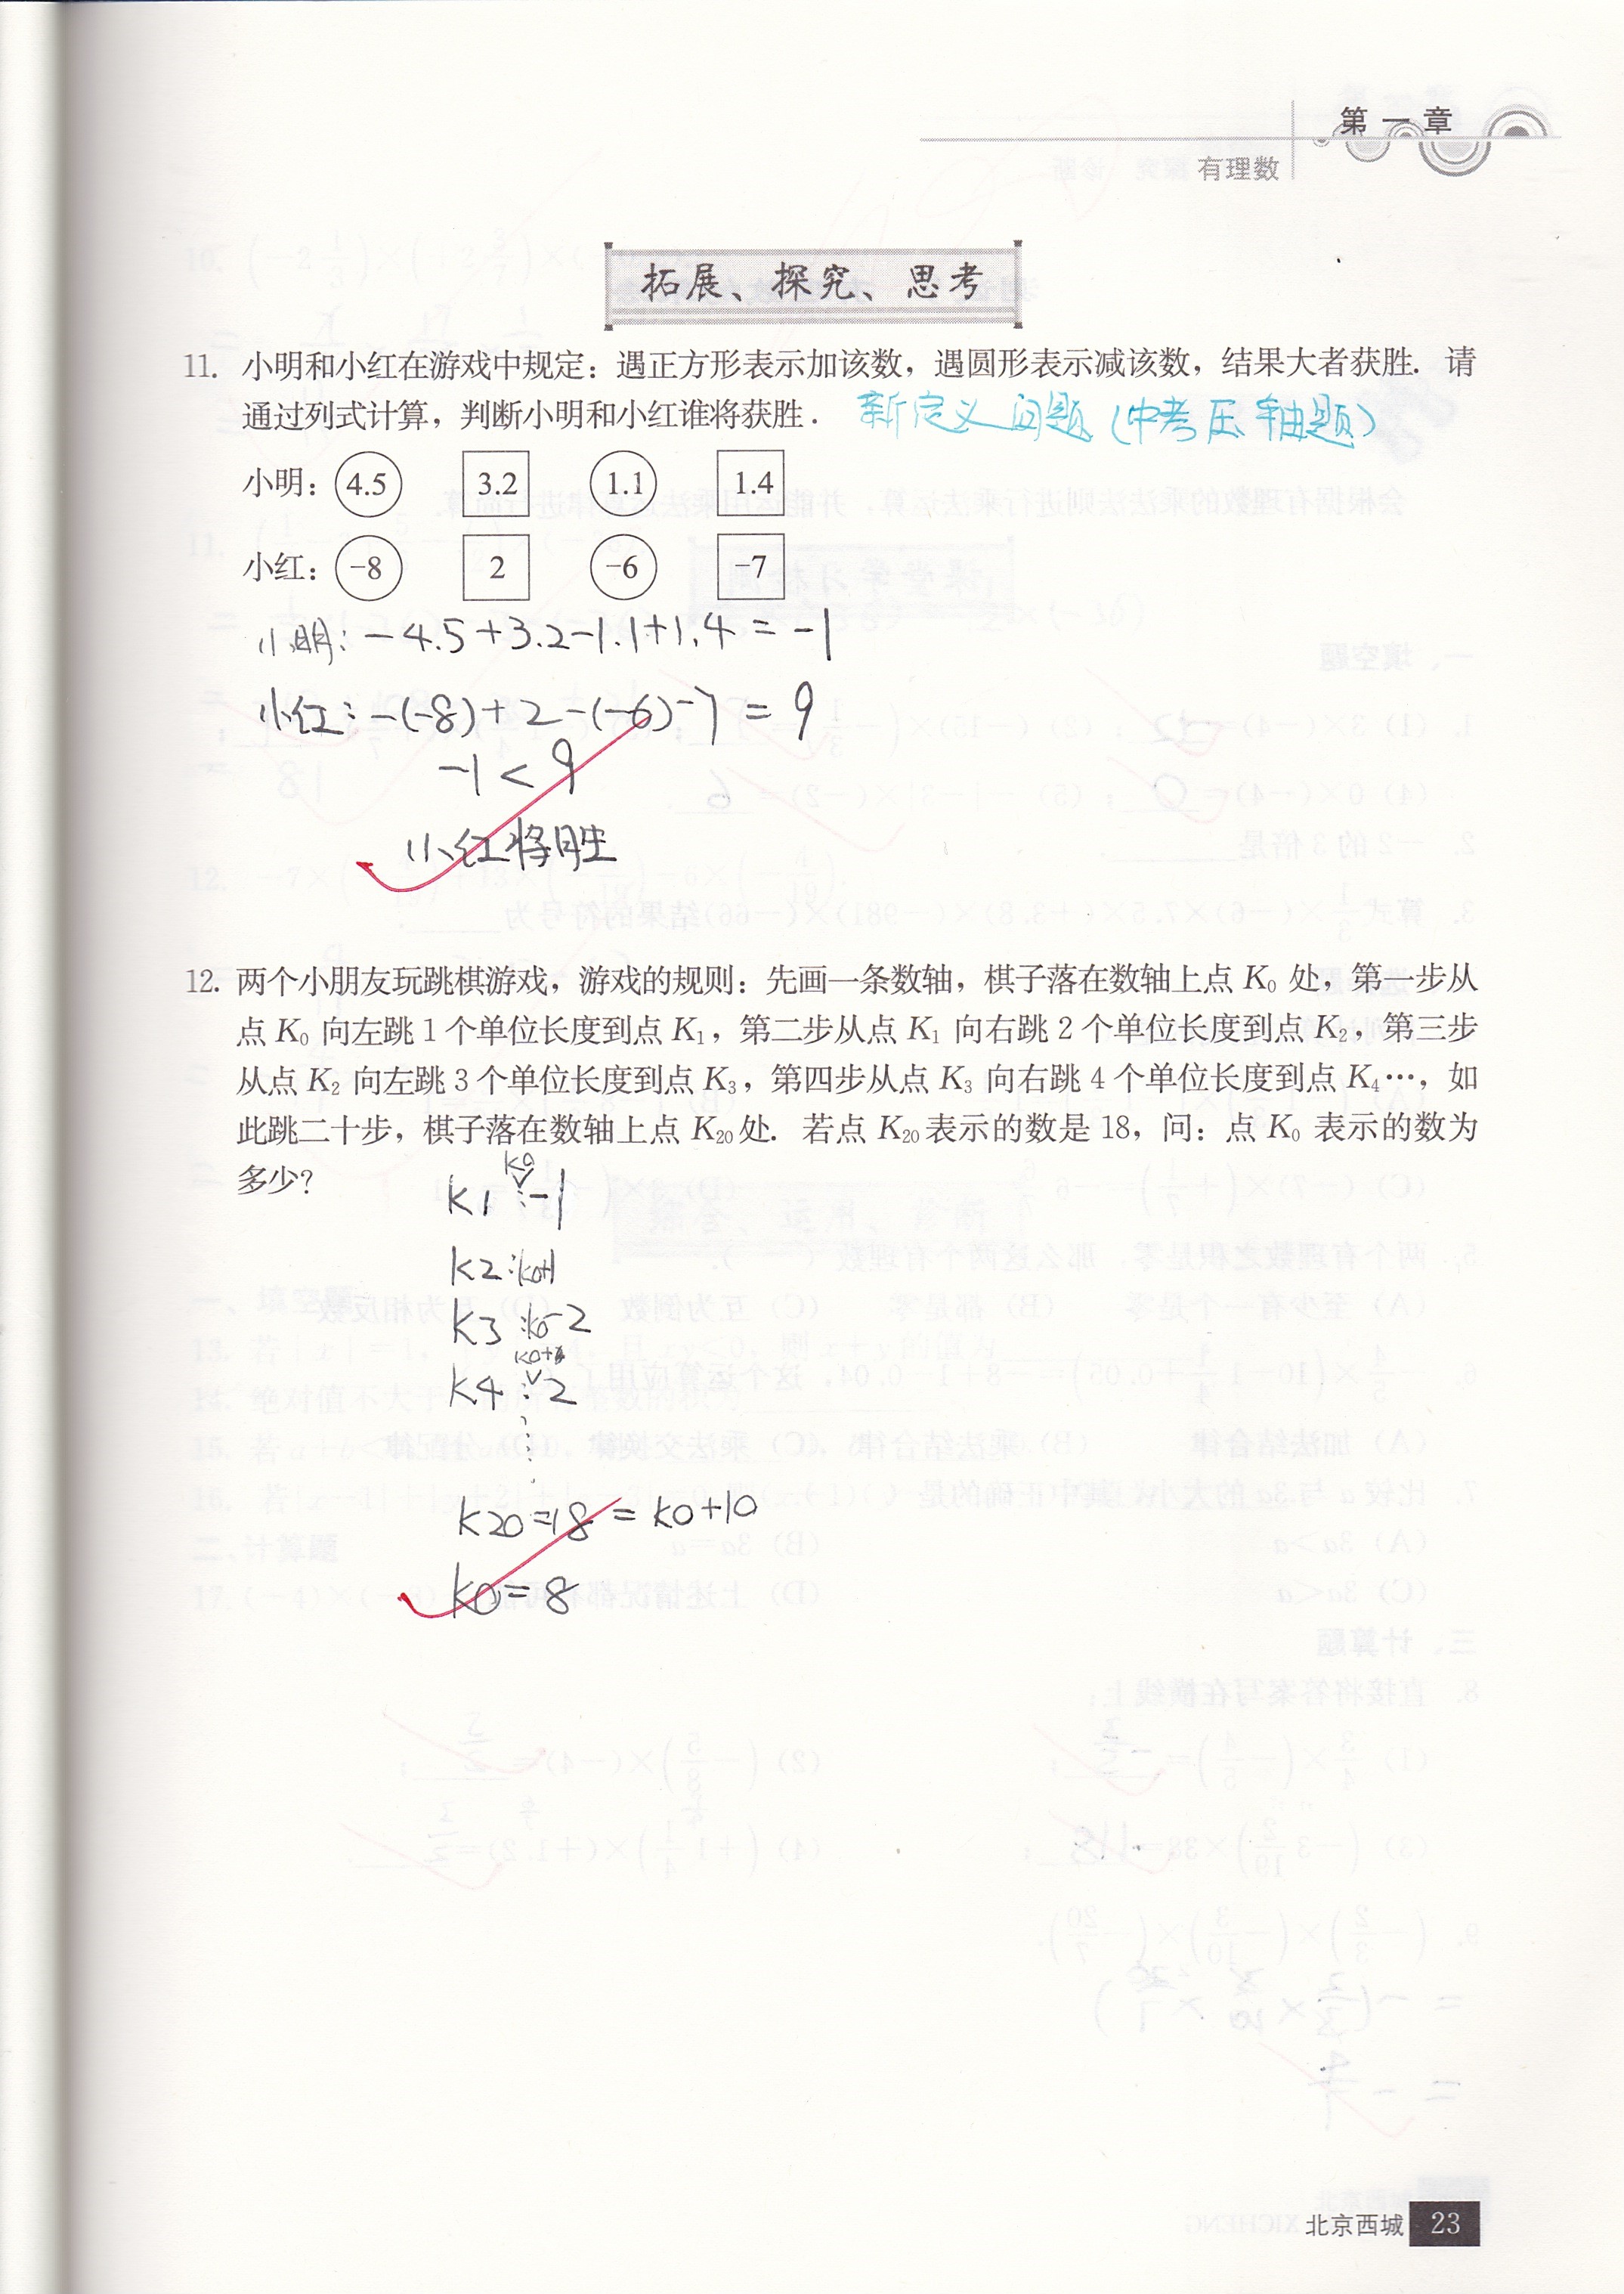 第一章
有理数
拓展、探究、思考
11. 小明和小红在游戏中规定：遇正方形表示加该数，遇圆形表示减该数，结果大者获胜. 请
通过列式计算，判断小明和小红谁将获胜. 新定义问题(中考压轴题)
小明： 4.5 3.2 1.1 1.4
小红： -8 2 -6 -7
小明: -4.5+3.2-1.1+1.4=-1
小红: -(-8)+2-(-6)-7=9
-1<9
小红将胜
12. 两个小朋友玩跳棋游戏，游戏的规则：先画一条数轴，棋子落在数轴上点 K₀ 处，第一步从
点 K₀ 向左跳 1 个单位长度到点 K₁，第二步从点 K₁ 向右跳 2 个单位长度到点 K₂，第三步
从点 K₂ 向左跳 3 个单位长度到点 K₃，第四步从点 K₃ 向右跳 4 个单位长度到点 K₄…，如
此跳二十步，棋子落在数轴上点 K₂₀ 处. 若点 K₂₀ 表示的数是 18，问：点 K₀ 表示的数为
多少？
K1:K0-1
K2:K0+1
K3:K0-2
K4:K0+2
K20=18=K0+10
K0=8
北京西城 23